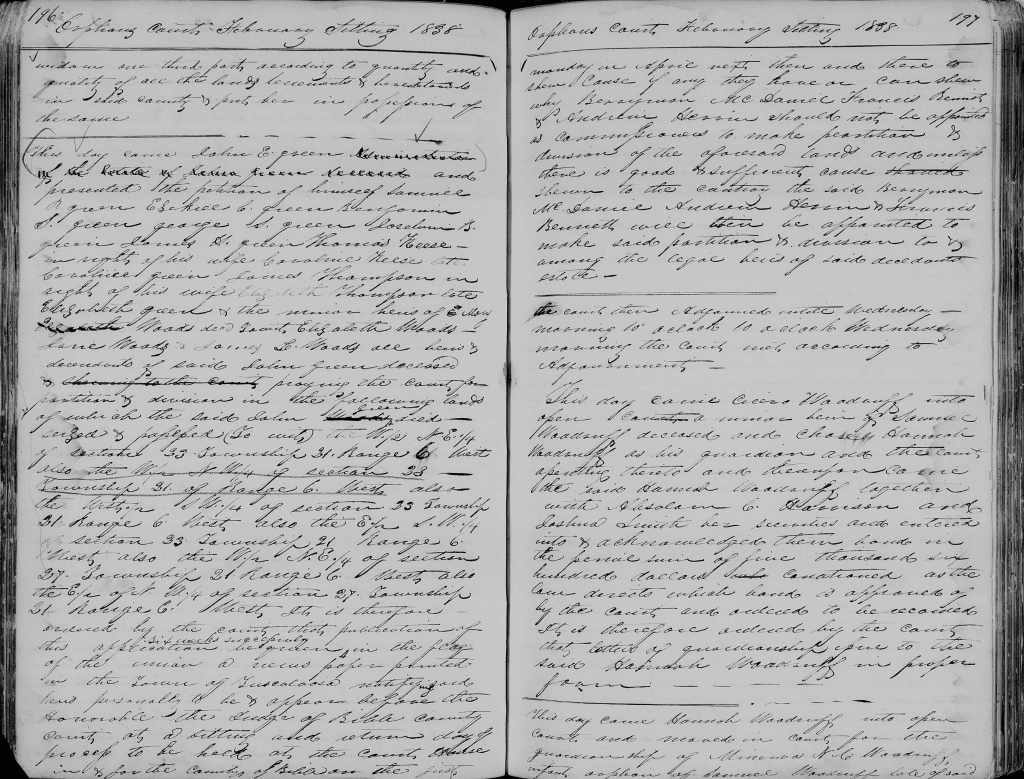 196
Orphans Court February Sitting 1838
widow one third part according to quantity and
quality of all the lands tenements & hereditaments
in said county & put her in possession of
the same
This day came John E. green Administrator
of the Estate of green deceased and
presented the petition of himself Samuel
green Ezekiel C. green Benjamin
S. green george S. green B.
green James H. green Thomas Reese
in right of his wife Caroline Reese late
Caroline green James Thompson in
right of his wife Elizabeth Thompson late
Elizabeth green & the minor heirs of
Woods decd Elizabeth Woods
Jane Woods & James E. Woods all heirs &
decendants of said John green deceased
& to the court praying the court for
partition & division in the following lands
of which the said John green died
seized & possessed (To wit) the W/2 N.E. 1/4
of section 33 Township 21. Range 6 West
also the W/2 N.W. 1/4 of section 23
Township 21. of Range 6. West also
the S W. 1/4 of section 23 Township
21 Range 6 West also the E/2 S.W. 1/4
of section 33 Township 21 Range 6.
West also the W/2 N.E. 1/4 of section
27. Township 21 Range 6 West also
the E/2 of N W. 1/4 of section 27. Township
21 Range 6. West, It is therefore
ordered by the court that publication of
six weeks successively
this application be given in the flag
of the union a news paper printed
in the Town of Tuscaloosa notifying said
heirs personally to be & appear before the
Honorable the Judge of Bibb county
court at a sitting and return day of
process to be held at the court house
in & for the county of Bibb on the first
197
Orphans Court February Sitting 1838
monday in April next then and there to
shew cause if any they have or can shew
why Berryman McDaniel Francis Bennett
& Andrew Herrin should not be appointed
as commissioners to make partition &
division of the aforesaid lands and unless
there is good & sufficient cause
shewn to the contrary the said Berryman
McDaniel Andrew Herrin & Francis
Bennett will then be appointed to
make said partition & division to &
among the legal heirs of said decedants
estate
The court then Adjourned untill Wednesday
morning 10 oclock 10 oclock Wednesday
morning the Court met according to
Adjournment
This day came Cicero Woodruff into
open a minor heir of Samuel
Woodruff deceased and chose Hannah
Woodruff as his guardian and the court
assenting thereto and thereupon came
the said Hannah Woodruff together
with Absolam C. Harrison and
Joshua Smith her securities and entered
into & acknowledged their bond in
the penal sum of five thousand six
hundred dollars conditioned as the
law directs which bond is approved of
by the court and ordered to be recorded
It is therefore ordered by the court
that letters of guardianship issue to the
said Hannah Woodruff in proper
form
This day came Hannah Woodruff into open
court and moved in court for the
guardianship of Minerva N. C. Woodruff,
infant orphan of Samuel Woodruff late of said